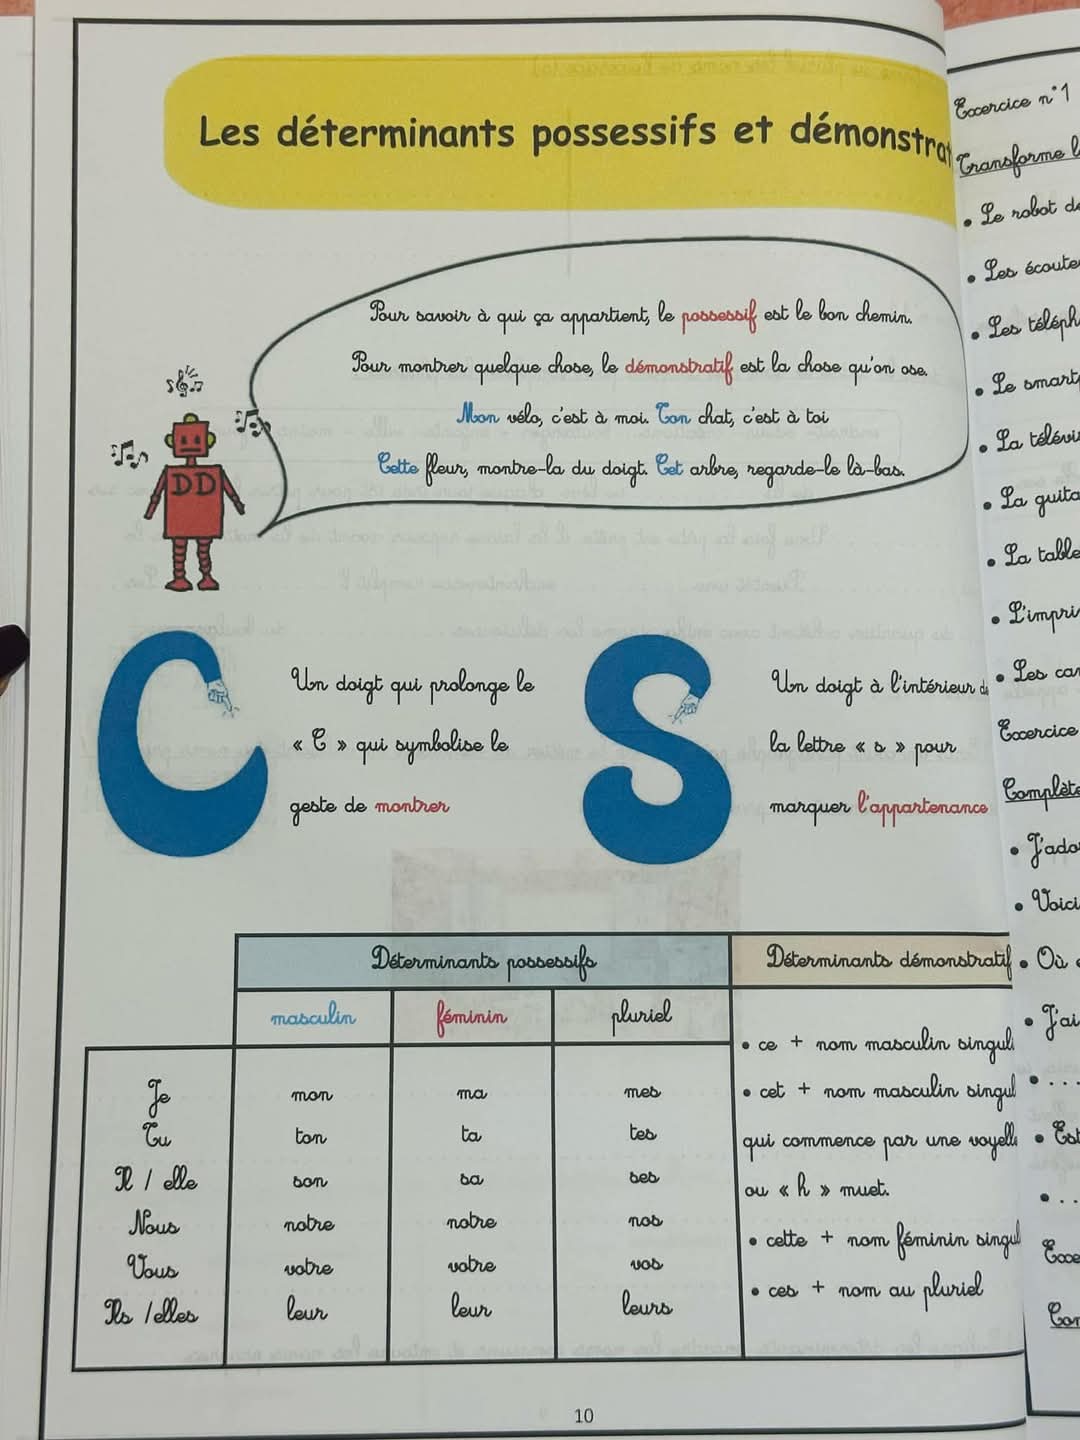 Les déterminants possessifs et démonstrat
Pour savoir à qui ça appartient, le possessif est le bon chemin.
Pour montrer quelque chose, le démonstratif est la chose qu'on ose.
Mon vélo, c'est à moi. Ton chat, c'est à toi
Cette fleur, montre-la du doigt. Cet arbre, regarde-le là-bas.
DD
C
Un doigt qui prolonge le
« C » qui symbolise le
geste de montrer
S
Un doigt à l'intérieur de
la lettre « s » pour
marquer l'appartenance
Déterminants possessifs
Déterminants démonstratif
masculin féminin pluriel
Je mon ma mes
Tu ton ta tes
Il / elle son sa ses
Nous notre notre nos
Vous votre votre vos
Ils /elles leur leur leurs
• ce + nom masculin singul
• cet + nom masculin singul
qui commence par une voyelle
ou « h » muet.
• cette + nom féminin singul
• ces + nom au pluriel
10
Exercice n°1
Transforme l
• Le robot de
• Les écoute
• Les téléph
• Le smart
• La télévi
• La guita
• La table
• L'impri
• Les car
Exercice
Complète
• J'ado
• Voici
• Où
• J'ai
• ...
• Est
• ..
Exe
Con